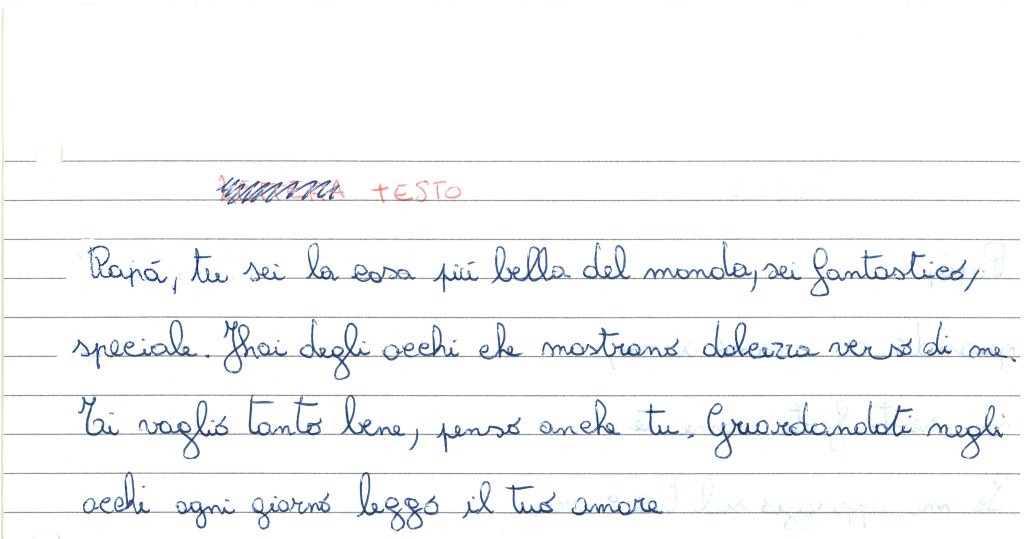 TESTO
Papá, tu sei la cosa piú bella del mondo, sei fantastico,
speciale. Hai degli occhi che mostrano dolcezza verso di me.
Ti voglio tanto bene, penso anche tu. Guardandoti negli
occhi ogni giorno leggo il tuo amore